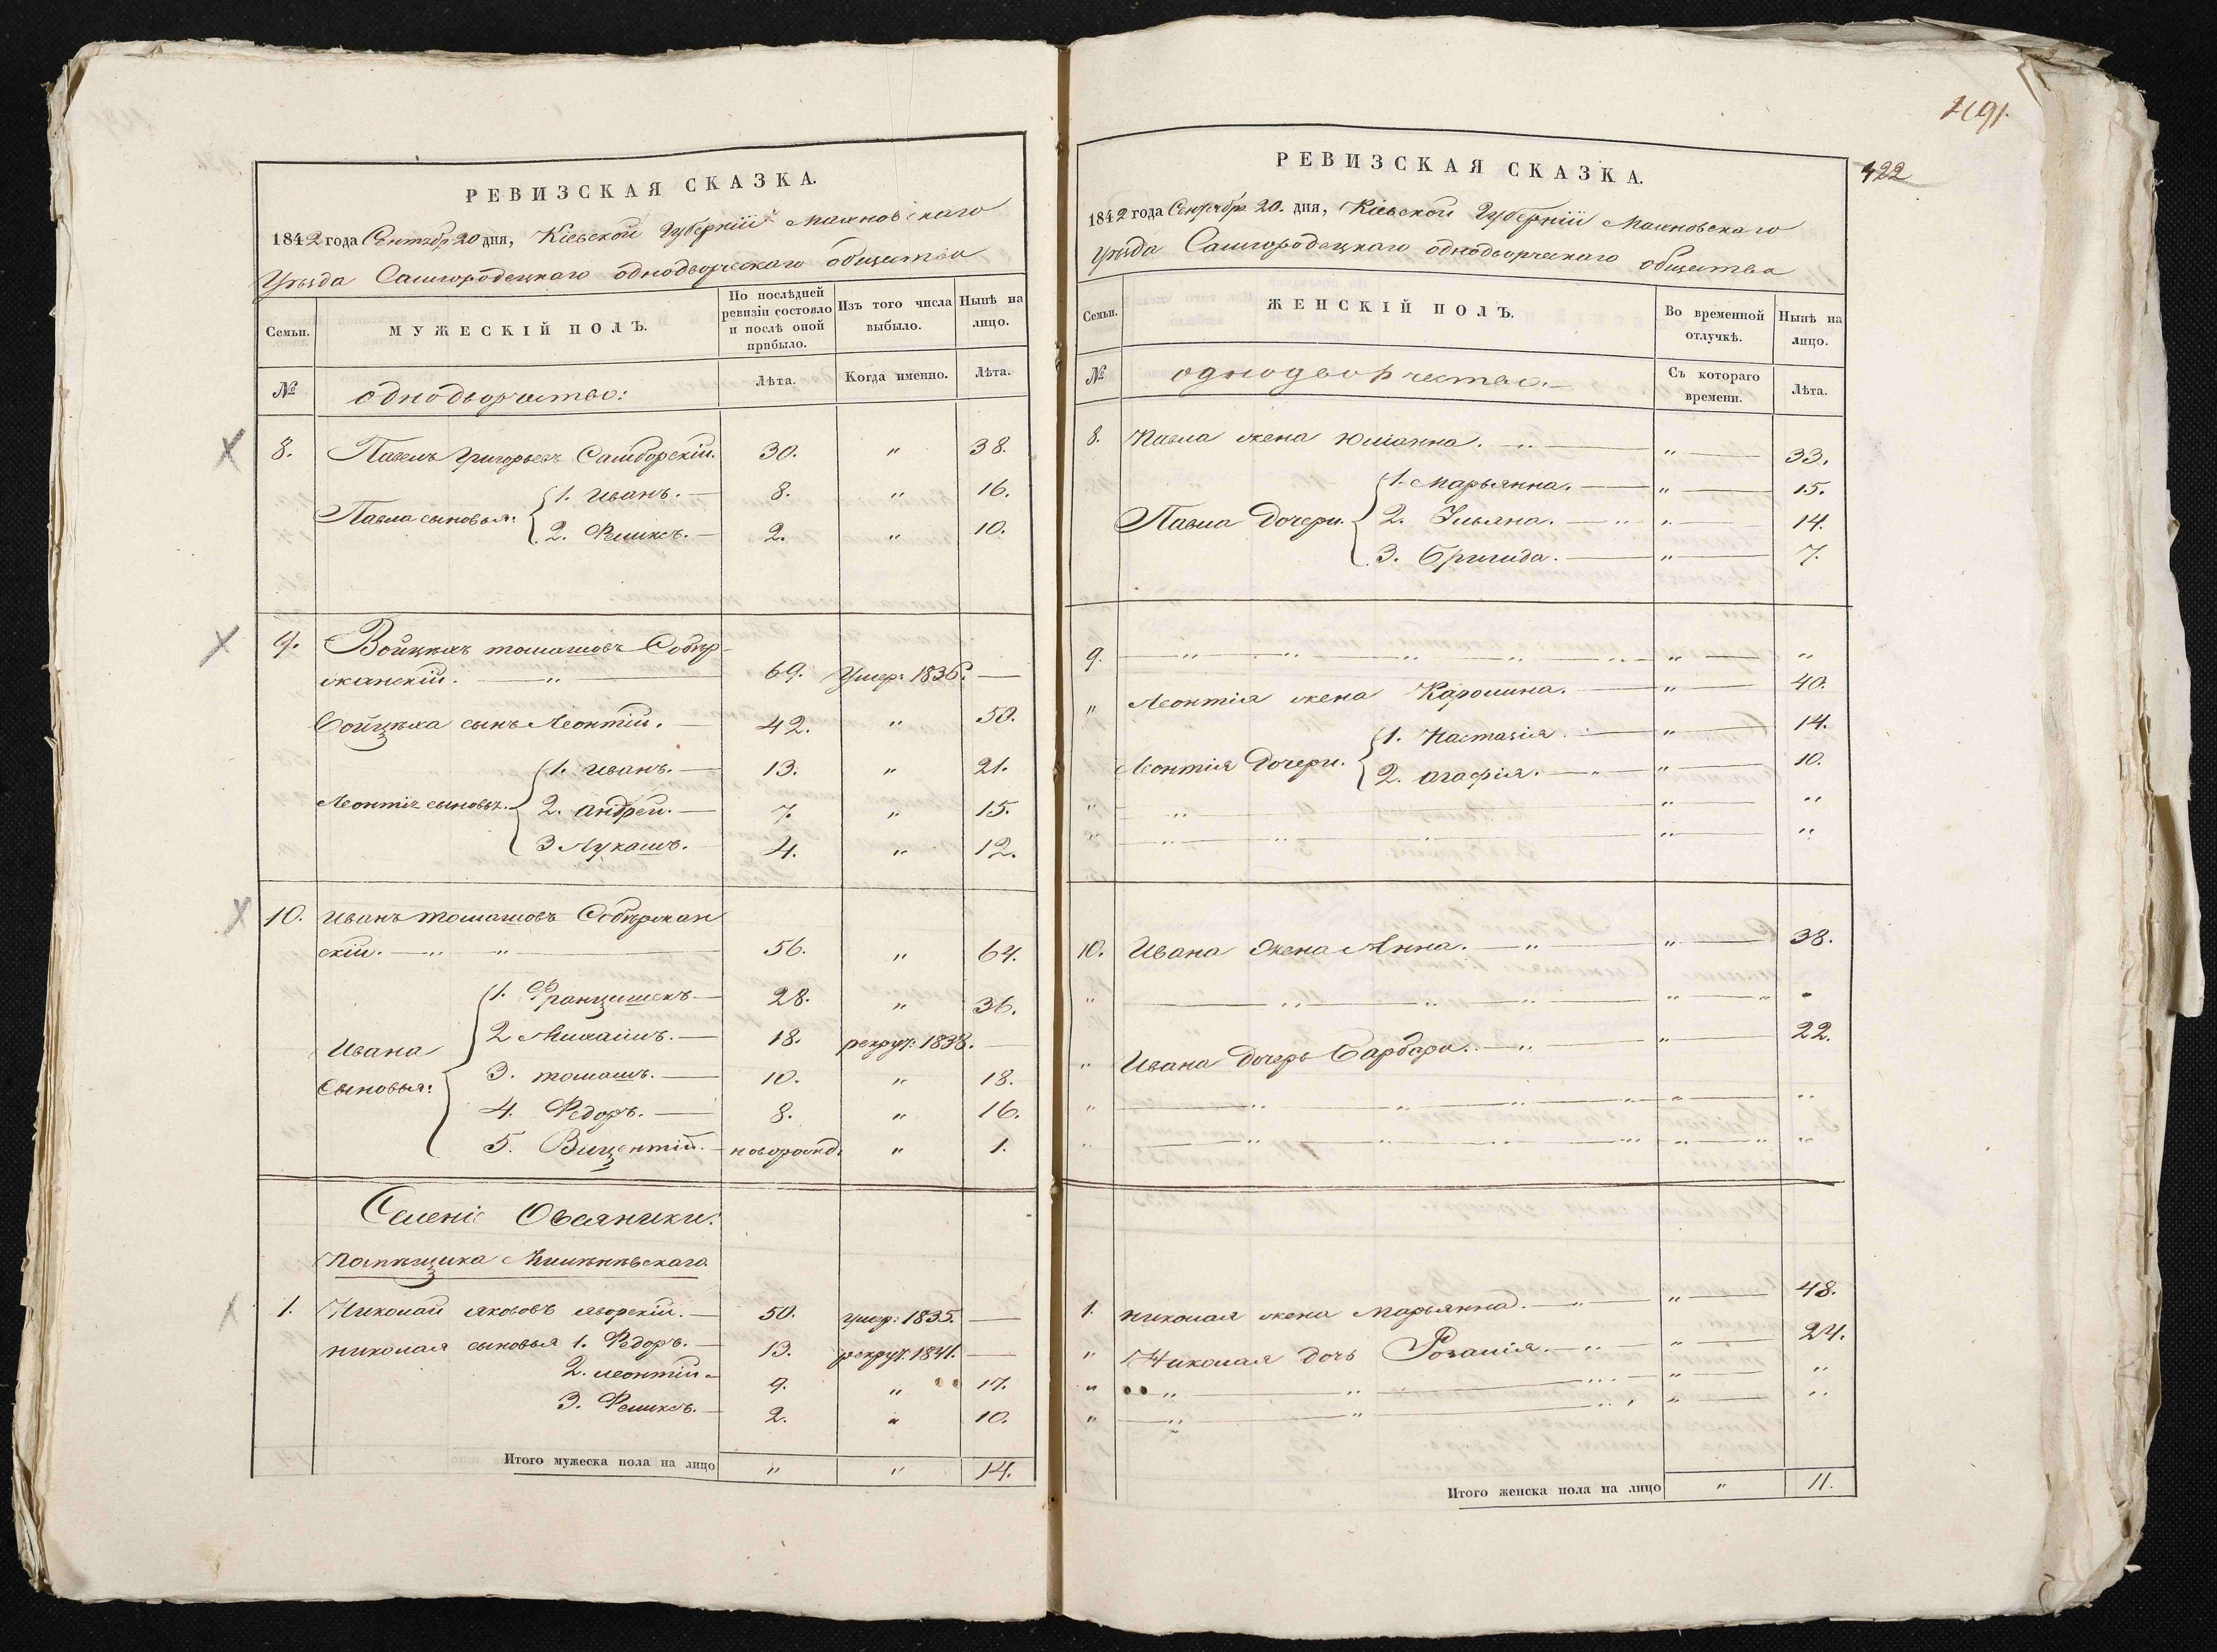 РЕВИЗСКАЯ СКАЗКА.
1842 года Сентябр 20 дня, Кіевской Губерніи Махновскаго
Уѣзда Самгородецкаго однодворческаго общества
Семьи.
МУЖЕСКІЙ ПОЛЪ.
По послѣдней ревизіи состояло и послѣ оной прибыло.
Изъ того числа выбыло.
Нынѣ на лицо.
№
однодворчество:
Лѣта.
Когда именно.
Лѣта.
8. Павелъ Григорьевъ Самборскій. 30. " 38.
Павла сыновья: 1. Иванъ. 8. " 16.
2. Феликсъ. 2. " 10.
9. Войцѣхъ Томашовъ Собѣр-
жанскій. " 69. Умер: 1836. —
Войцѣха сынъ Леонтій. 42. " 50.
1. Иванъ. 13. " 21.
Леонтія сыновья. 2. Андрей. 7. " 15.
3 Лукашъ. 4. " 12.
10. Иванъ Томашовъ Собѣржан
скій. " " 56. " 64.
1. Францишекъ 28. " 36.
2 Михаилъ. 18. рекрут: 1838. —
Ивана
3. Томашъ. 10. " 18.
Сыновья:
4. Федоръ. 8. " 16.
5. Вицентій. новорожд. " 1.
Селеніе Овсяники.
Помѣщика
1. Николай Яковъ Яворскій. 50. умер: 1835. —
Николая сыновья 1. Федоръ. 13. рекрут. 1841. —
2. Леонтій 9. " 17.
3. Феликсъ. 2. " 10.
Итого мужеска пола на лицо " " 14.
1191.
422
РЕВИЗСКАЯ СКАЗКА.
1842 года Сентября 20. дня, Кіевской Губерніи Махновскаго
Уѣзда Самгородецкаго однодворческаго общества
Семьи.
ЖЕНСКІЙ ПОЛЪ.
Во временной отлучкѣ.
Нынѣ на лицо.
№
однодворчество.
Съ котораго времени.
Лѣта.
8. Павла жена Юліанна. " " 33.
1. Марьянна. " 15.
Павла Дочери. 2. Ульяна. " " 14.
3. Бригида. " 7.
9. " " " " " " "
" Леонтія жена Каролина. " 40.
1. Настазія " 14.
Леонтія Дочери. 2. Агафія. " " 10.
" " " "
" " " " "
10. Ивана Жена Анна. " " 38.
" " " " " "
" Ивана Дочерь Барбара. " " 22.
" " " " " " "
" " " " " " " "
1. Николая жена Марьянна. " " 48.
" Николая дочь Розалія. " " 24.
" " " " " "
" " " " " "
Итого женска пола на лицо " 11.